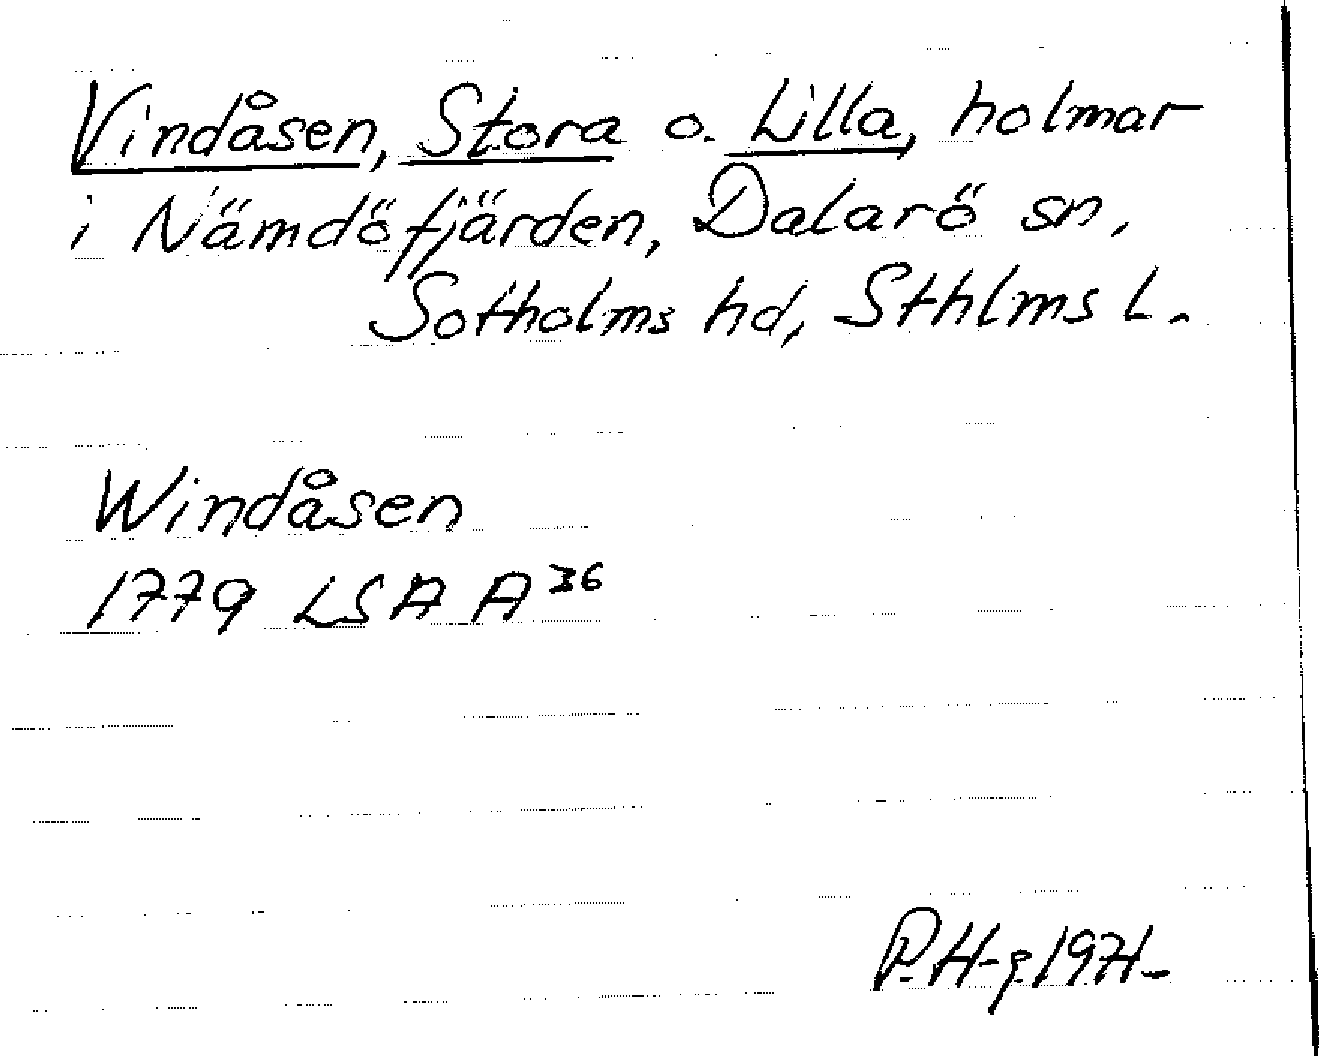 Vindåsen, Stora o. Lilla, holmar
i Nämdöfjärden, Dalarö sn,
Sotholms hd, Sthlms l.
Windåsen
1779 LSA A 36
P. H-g. 1971-